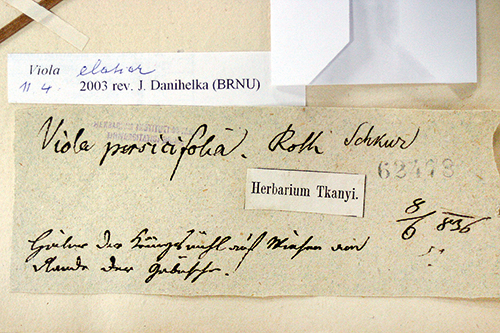 Viola elatior
11 4. 2003 rev. J. Danihelka (BRNU)
Viola persicifolia. Roth Schkur
62478
Herbarium Tkanyi.
8/6 836
auf Wiesen am
Rande der Gebüsche.!